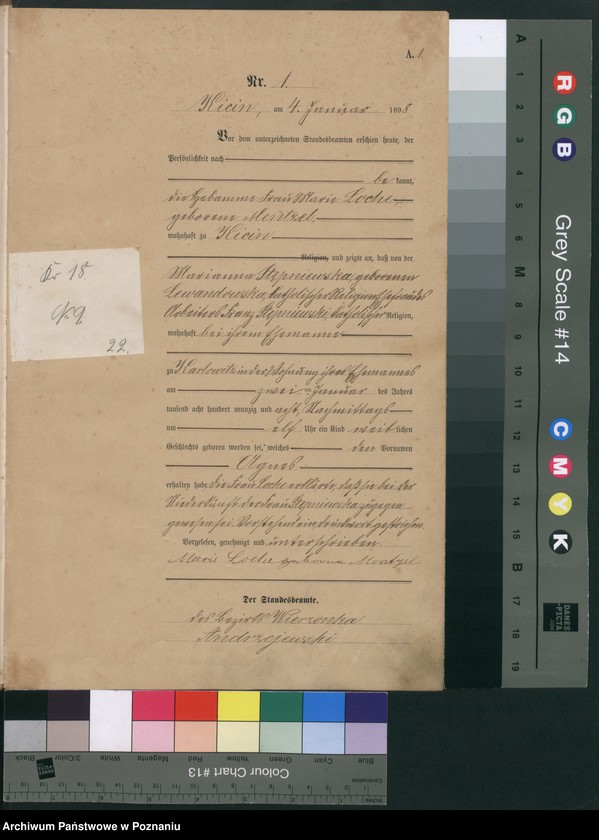 A. 1.
Nr. 1.
Kicin, am 4. Januar 1898
Vor dem unterzeichneten Standesbeamten erschien heute, der
Persönlichkeit nach
be kannt,
die Hebamme Frau Marie Loche,
geborene Mentzel.
wohnhaft zu Kicin
Religion, und zeigte an, daß von der
Marianna Stępniewska, geborenen
Lewandowska, katholischer Religion, Ehefrau des
Arbeiters Franz Stępniewski, katholischer Religion,
wohnhaft bei ihrem Ehemanne
zu Karlowitz in der Wohnung ihres Ehemannes
am zwei ten Januar des Jahres
tausend acht hundert neunzig und acht, Nachmittags
um elf Uhr ein Kind weib lichen
Geschlechts geboren worden sei, welches den Vornamen
Agnes
erhalten habe. Die Frau Loche erklärte, daß sie bei der
Niederkunft der Frau Stępniewska zugegen
gewesen sei. Vorstehend ein Druckwort gestrichen.
Vorgelesen, genehmigt und unterschrieben
Marie Loche geborene Mentzel
Der Standesbeamte.
des Bezirks Wierzonka
Andrzejewski
18
N 9.
22.
A 1 2 3 4 5 6 M 8 9 10 11 12 13 14 15 B 17 18 19
R G B
Grey Scale #14
C M Y K
DANES
PICTA
.COM
Blue Cyan Green Yellow Red Magenta White 3/Color Black
Colour Chart #13
Centimetres
Inches
Archiwum Państwowe w Poznaniu